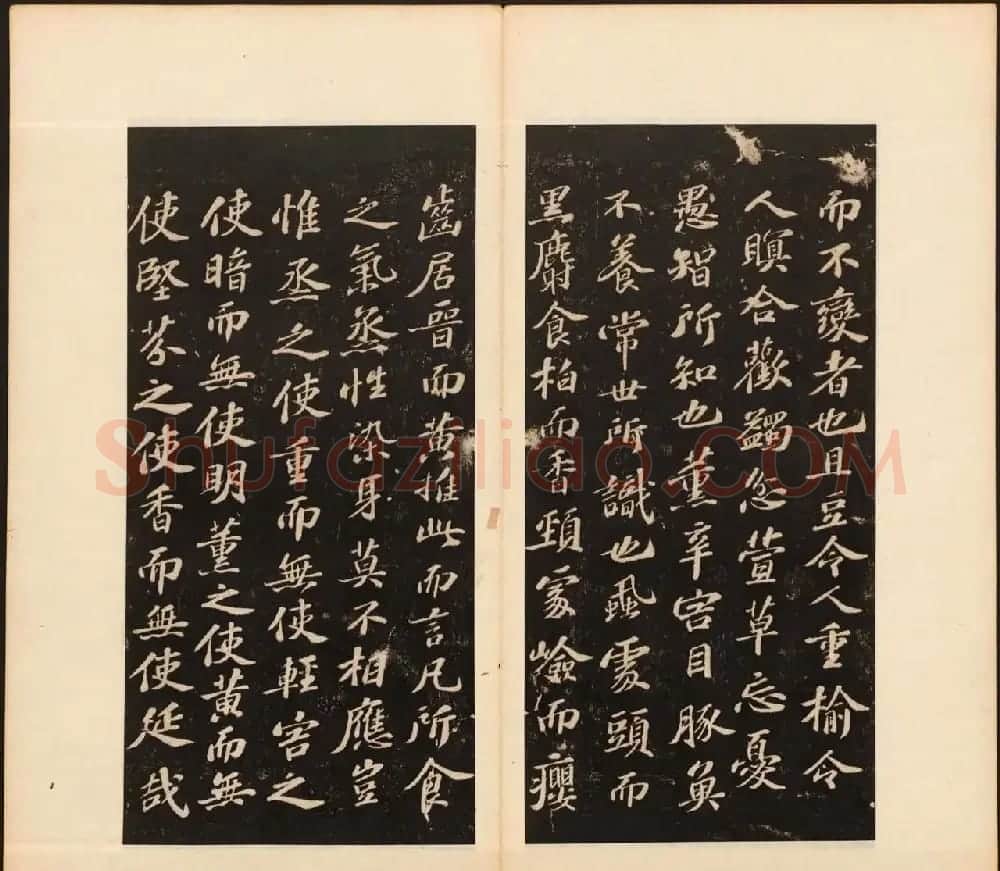 而不變者也且豆令人重榆令
人瞑合歡蠲忿萱草忘憂
愚智所知也薰辛害目豚魚
不養常世所識也蝨處頭而
黑麝食柏而香頸處險而癭
齒居晉而黃推此而言凡所食
之氣烝性染身莫不相應豈
惟烝之使重而無使輕害之
使暗而無使明薰之使黃而無
使堅芬之使香而無使延哉
Shufaziliao.COM